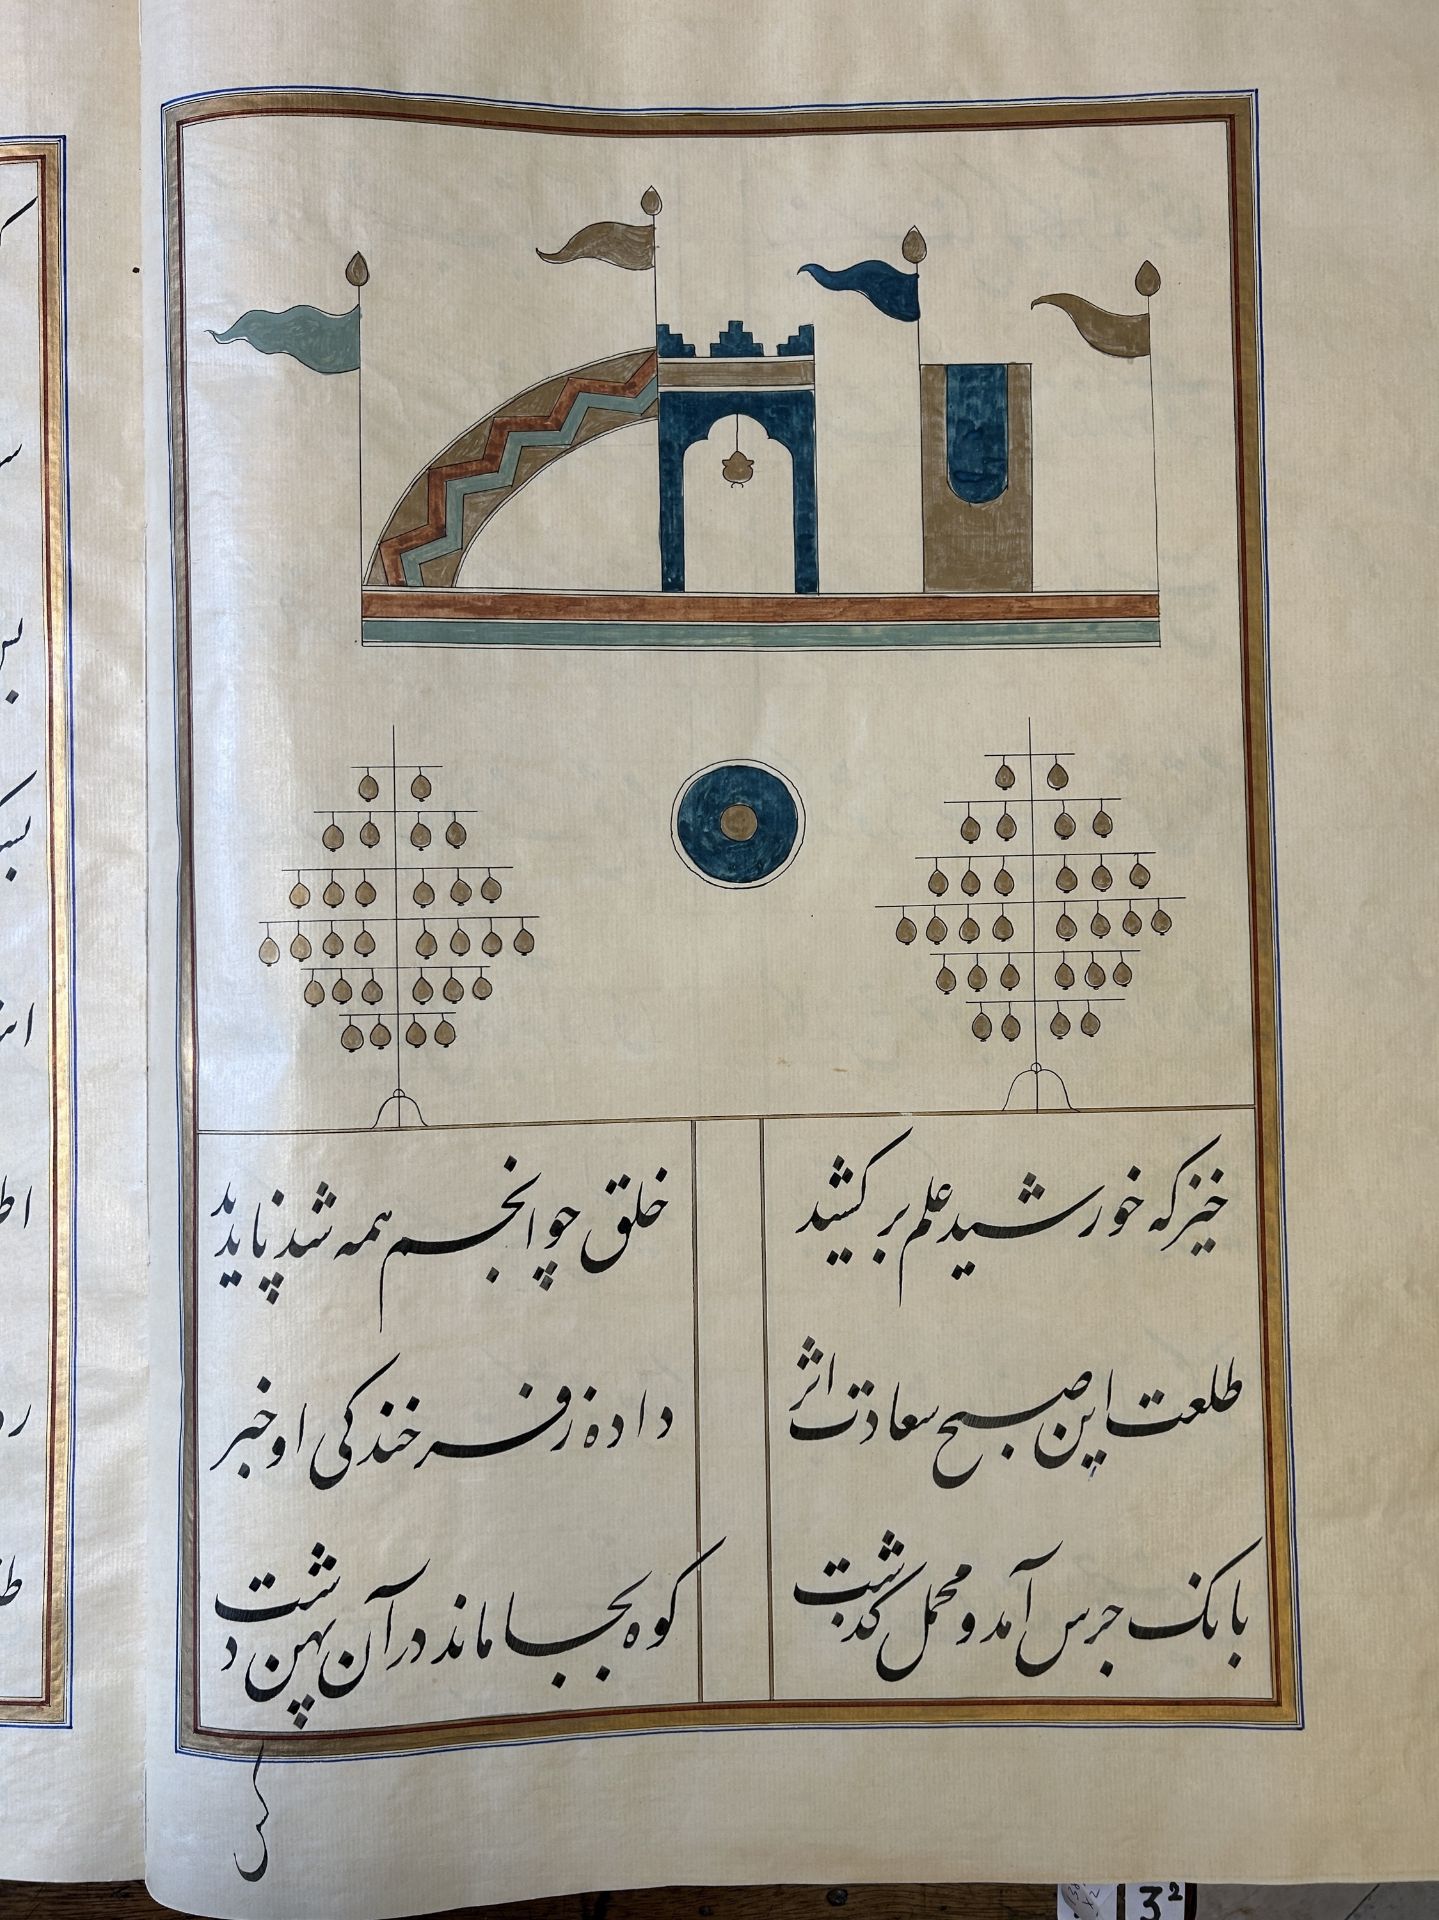 خیز که خورشید علم برکشید
خلق چو انجم همه شد ناپدید
طلعت این صبح سعادت اثر
داده ز فرخندگی او خبر
بانک جرس آمد و محمل گذشت
کوه بجا ماند در آن پهن دشت
3²